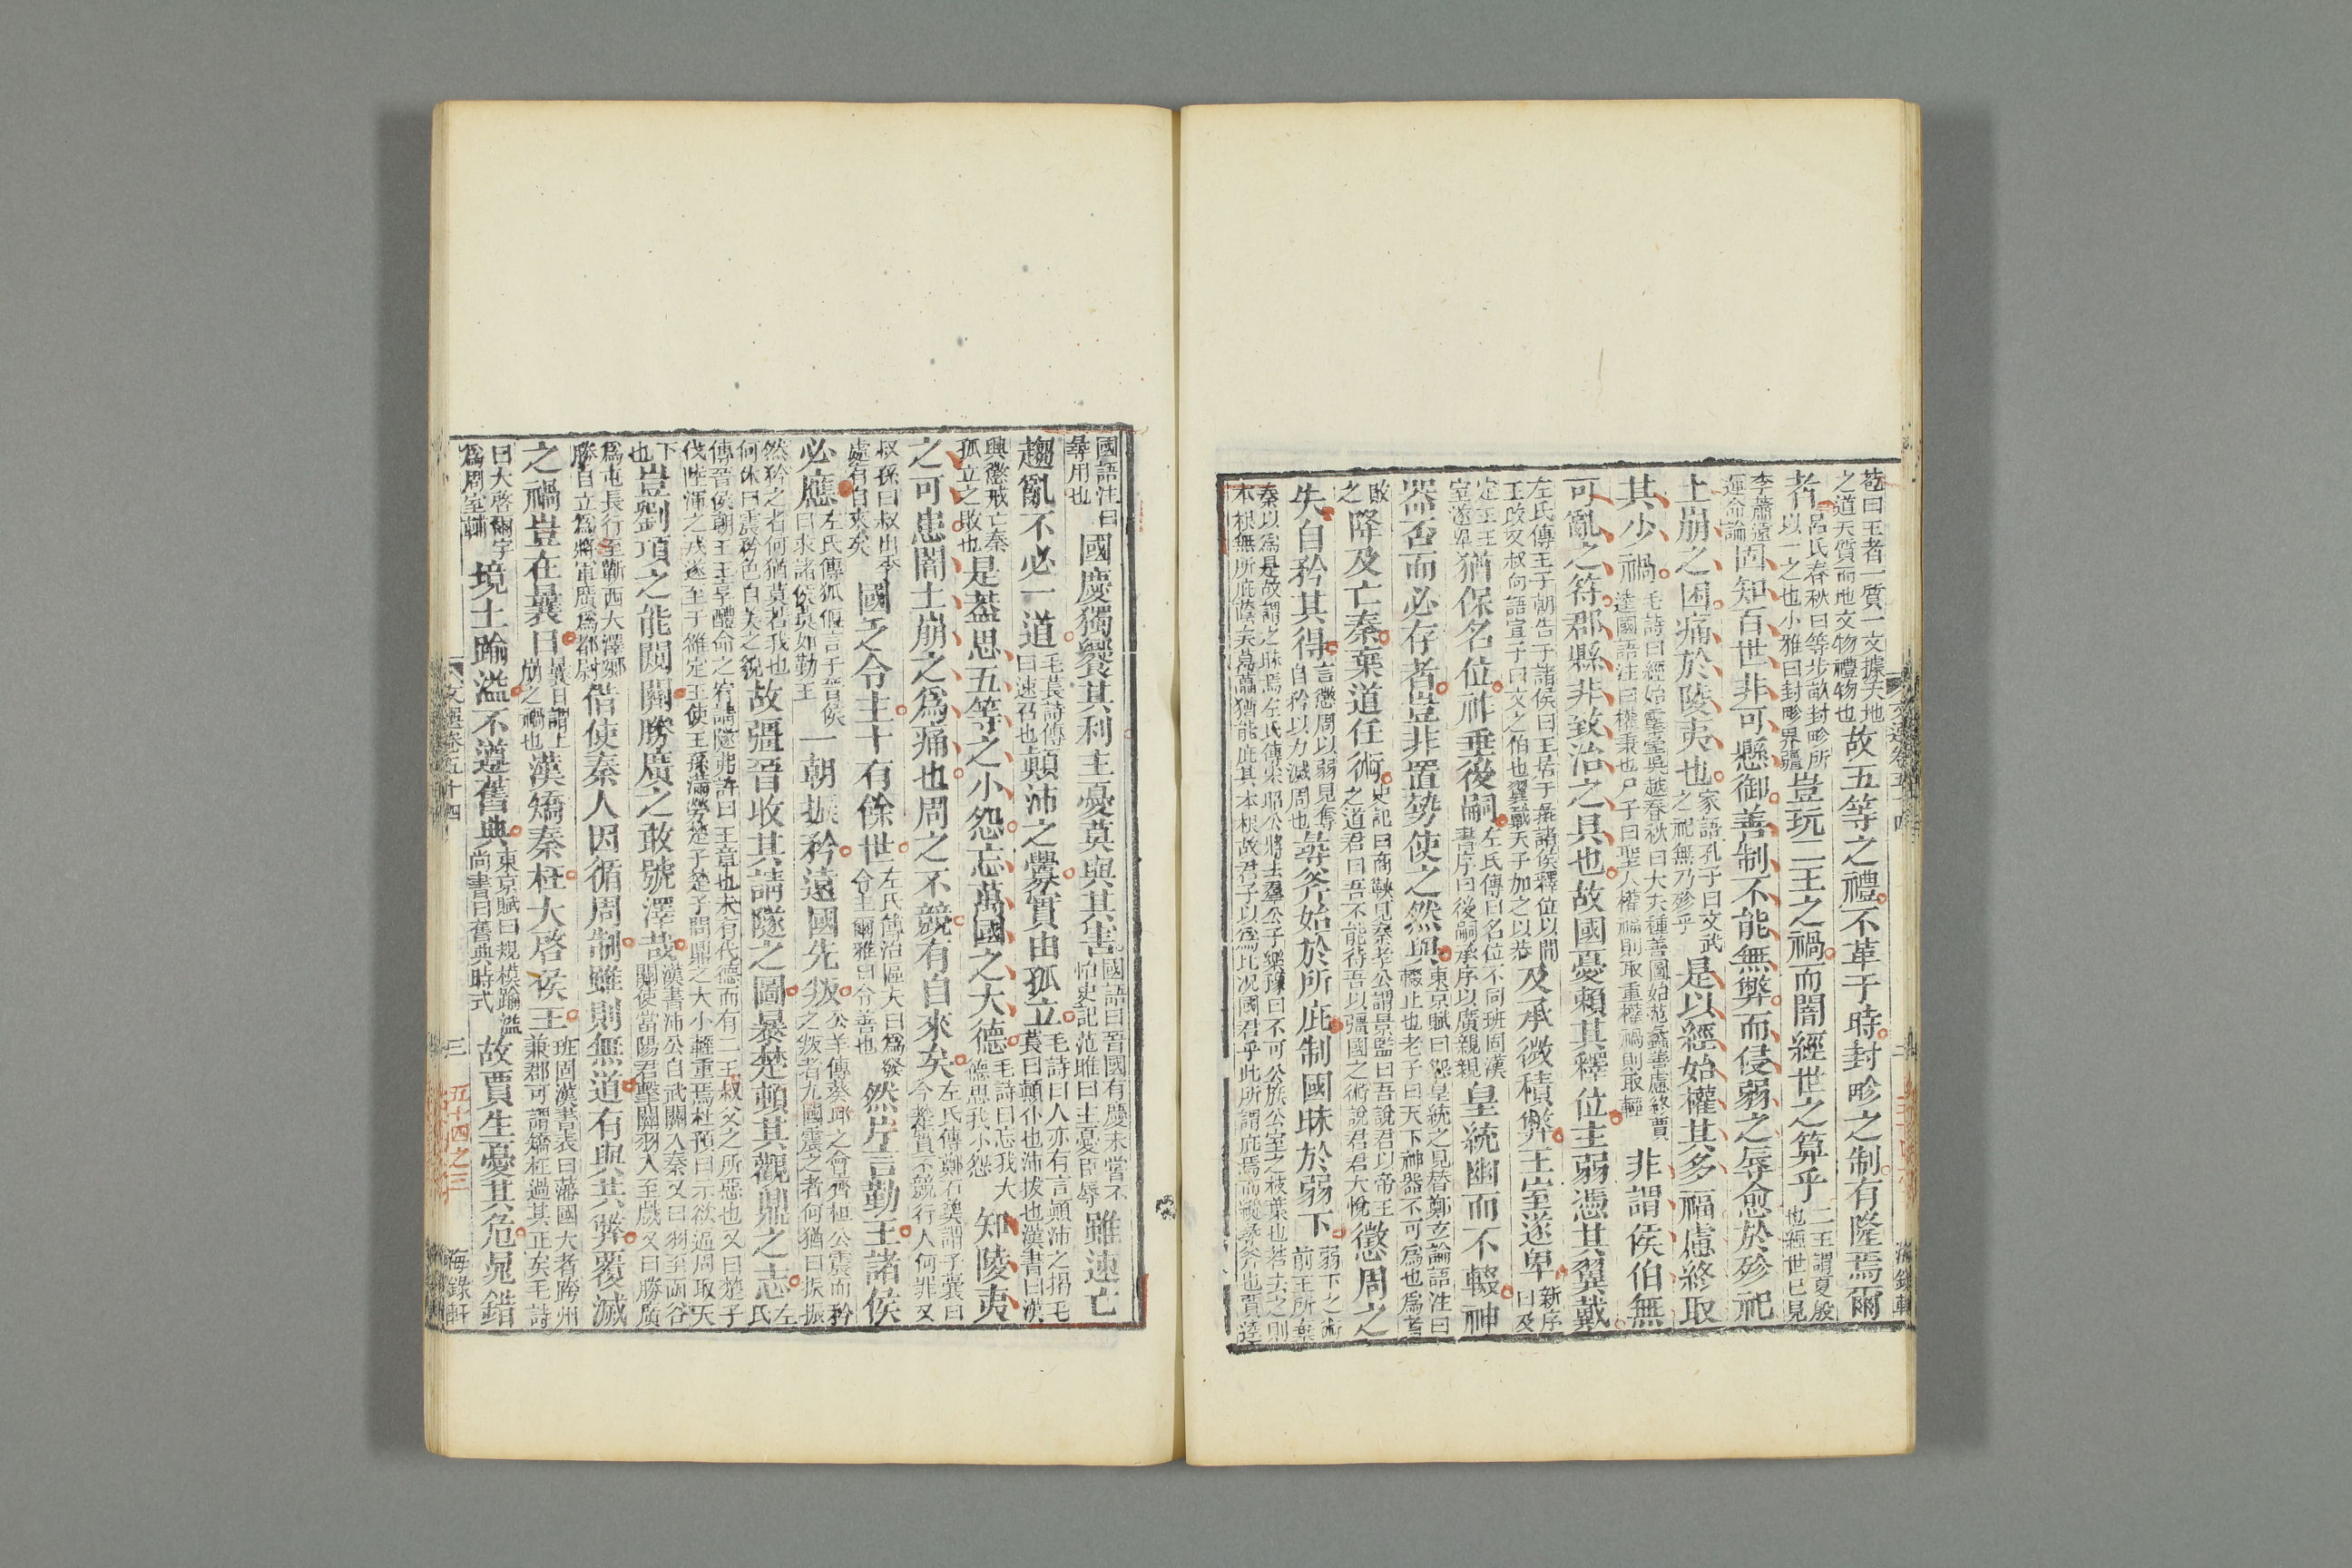 苞曰王者一質一文據天地
之道天質而地文物禮物也故五等之禮不革于時封畛之制有隆焉爾
者呂氏春秋曰等步畝封畛所
以一之也小雅曰封畛界疆豈玩二王之禍而闇經世之算乎二王謂夏殷
也經世已見
李蕭遠
運命論固知百世非可懸御善制不能無弊而侵弱之辱愈於殄祀
土崩之困痛於陵夷也家語孔子曰文武
之祀無乃殄乎是以經始權其多福慮終取
其少禍毛詩曰經始靈臺吳越春秋曰大夫種善圖始范蠡善慮終賈
逵國語注曰權秉也尸子曰聖人權福則取重權禍則取輕非謂侯伯無
可亂之符郡縣非致治之具也故國憂賴其釋位主弱憑其翼戴
左氏傳王子朝告于諸侯曰王居于彘諸侯釋位以間
王政又叔向語宣子曰文之伯也翼戴天子加之以恭及承微積弊王室遂卑新序
曰及
定王王
室遂卑猶保名位祚垂後嗣左氏傳曰名位不同班固漢
書序曰後嗣承序以廣親親皇統幽而不輟神
器否而必存者豈非置勢使之然與東京賦曰怨皇統之見替鄭玄論語注曰
輟止也老子曰天下神器不可為也為者
敗
之降及亡秦棄道任術史記曰商鞅見秦孝公謂景監曰吾說君以帝王
之道君曰吾不能待吾以彊國之術說君君大悅懲周之
失自矜其得言懲周以弱見奪
自矜以力滅周也尋斧始於所庇制國昧於弱下弱下之術
前王所棄
秦以為是故謂之昧焉左氏傳宋昭公將去羣公子樂豫曰不可公族公室之枝葉也若去之則
本根無所庇蔭矣葛藟猶能庇其本根故君子以為比況國君乎此所謂庇焉而縱尋斧也賈逵
國語注曰
尋用也國慶獨饗其利主憂莫與其害國語曰晉國有慶未嘗不
怡史記范雎曰主憂臣辱雖速亡
趨亂不必一道毛萇詩傳
曰速召也顛沛之釁實由孤立毛詩曰人亦有言顛沛之揭毛
萇曰顛仆也沛拔也漢書曰漢
興懲戒亡秦
孤立之敗也是蓋思五等之小怨忘萬國之大德毛詩曰忘我大
德思我小怨知陵夷
之可患闇土崩之為痛也周之不競有自來矣左氏傳鄭石㚟謂子囊曰
今楚實不競行人何罪又
叔孫曰叔出季
處有自來矣國乏令主十有餘世左氏傳治區夫曰為發
令主爾雅曰令善也然片言勤王諸侯
必應左氏傳狐偃言于晉侯
曰求諸侯莫如勤王一朝振矜遠國先叛公羊傳葵邱之會齊桓公震而矜
之叛者九國震之者何猶曰振振
然矜之者何猶莫若我也
何休曰震矜色自美之貌故彊晉收其請隧之圖暴楚頓其觀鼎之志左
氏
傳晉侯朝王王享醴命之宥請隧弗許曰王章也未有代德而有二王叔父之所惡也又曰楚子
伐陸渾之戎遂至于雒定王使王孫滿勞楚子楚子問鼎之大小輕重焉杜預曰示欲逼周取天
下
也豈劉項之能闚關勝廣之敢號澤哉漢書沛公自武關入秦又曰羽至函谷
關使當陽君擊關羽入至戲又曰勝廣
為屯長行至蘄西大澤鄉
勝自立為將軍廣為都尉借使秦人因循周制雖則無道有與共弊覆滅
之禍豈在曩日曩日謂土
崩之禍也漢矯秦枉大啓侯王班固漢書表曰藩國大者跨州
兼郡可謂矯枉過其正矣毛詩
曰大啓爾宇
為周室輔境土踰溢不遵舊典東京賦曰規模踰溢
尚書曰舊典時式故賈生憂其危晁錯
文選卷五十四
三
五十四之三
海錄軒